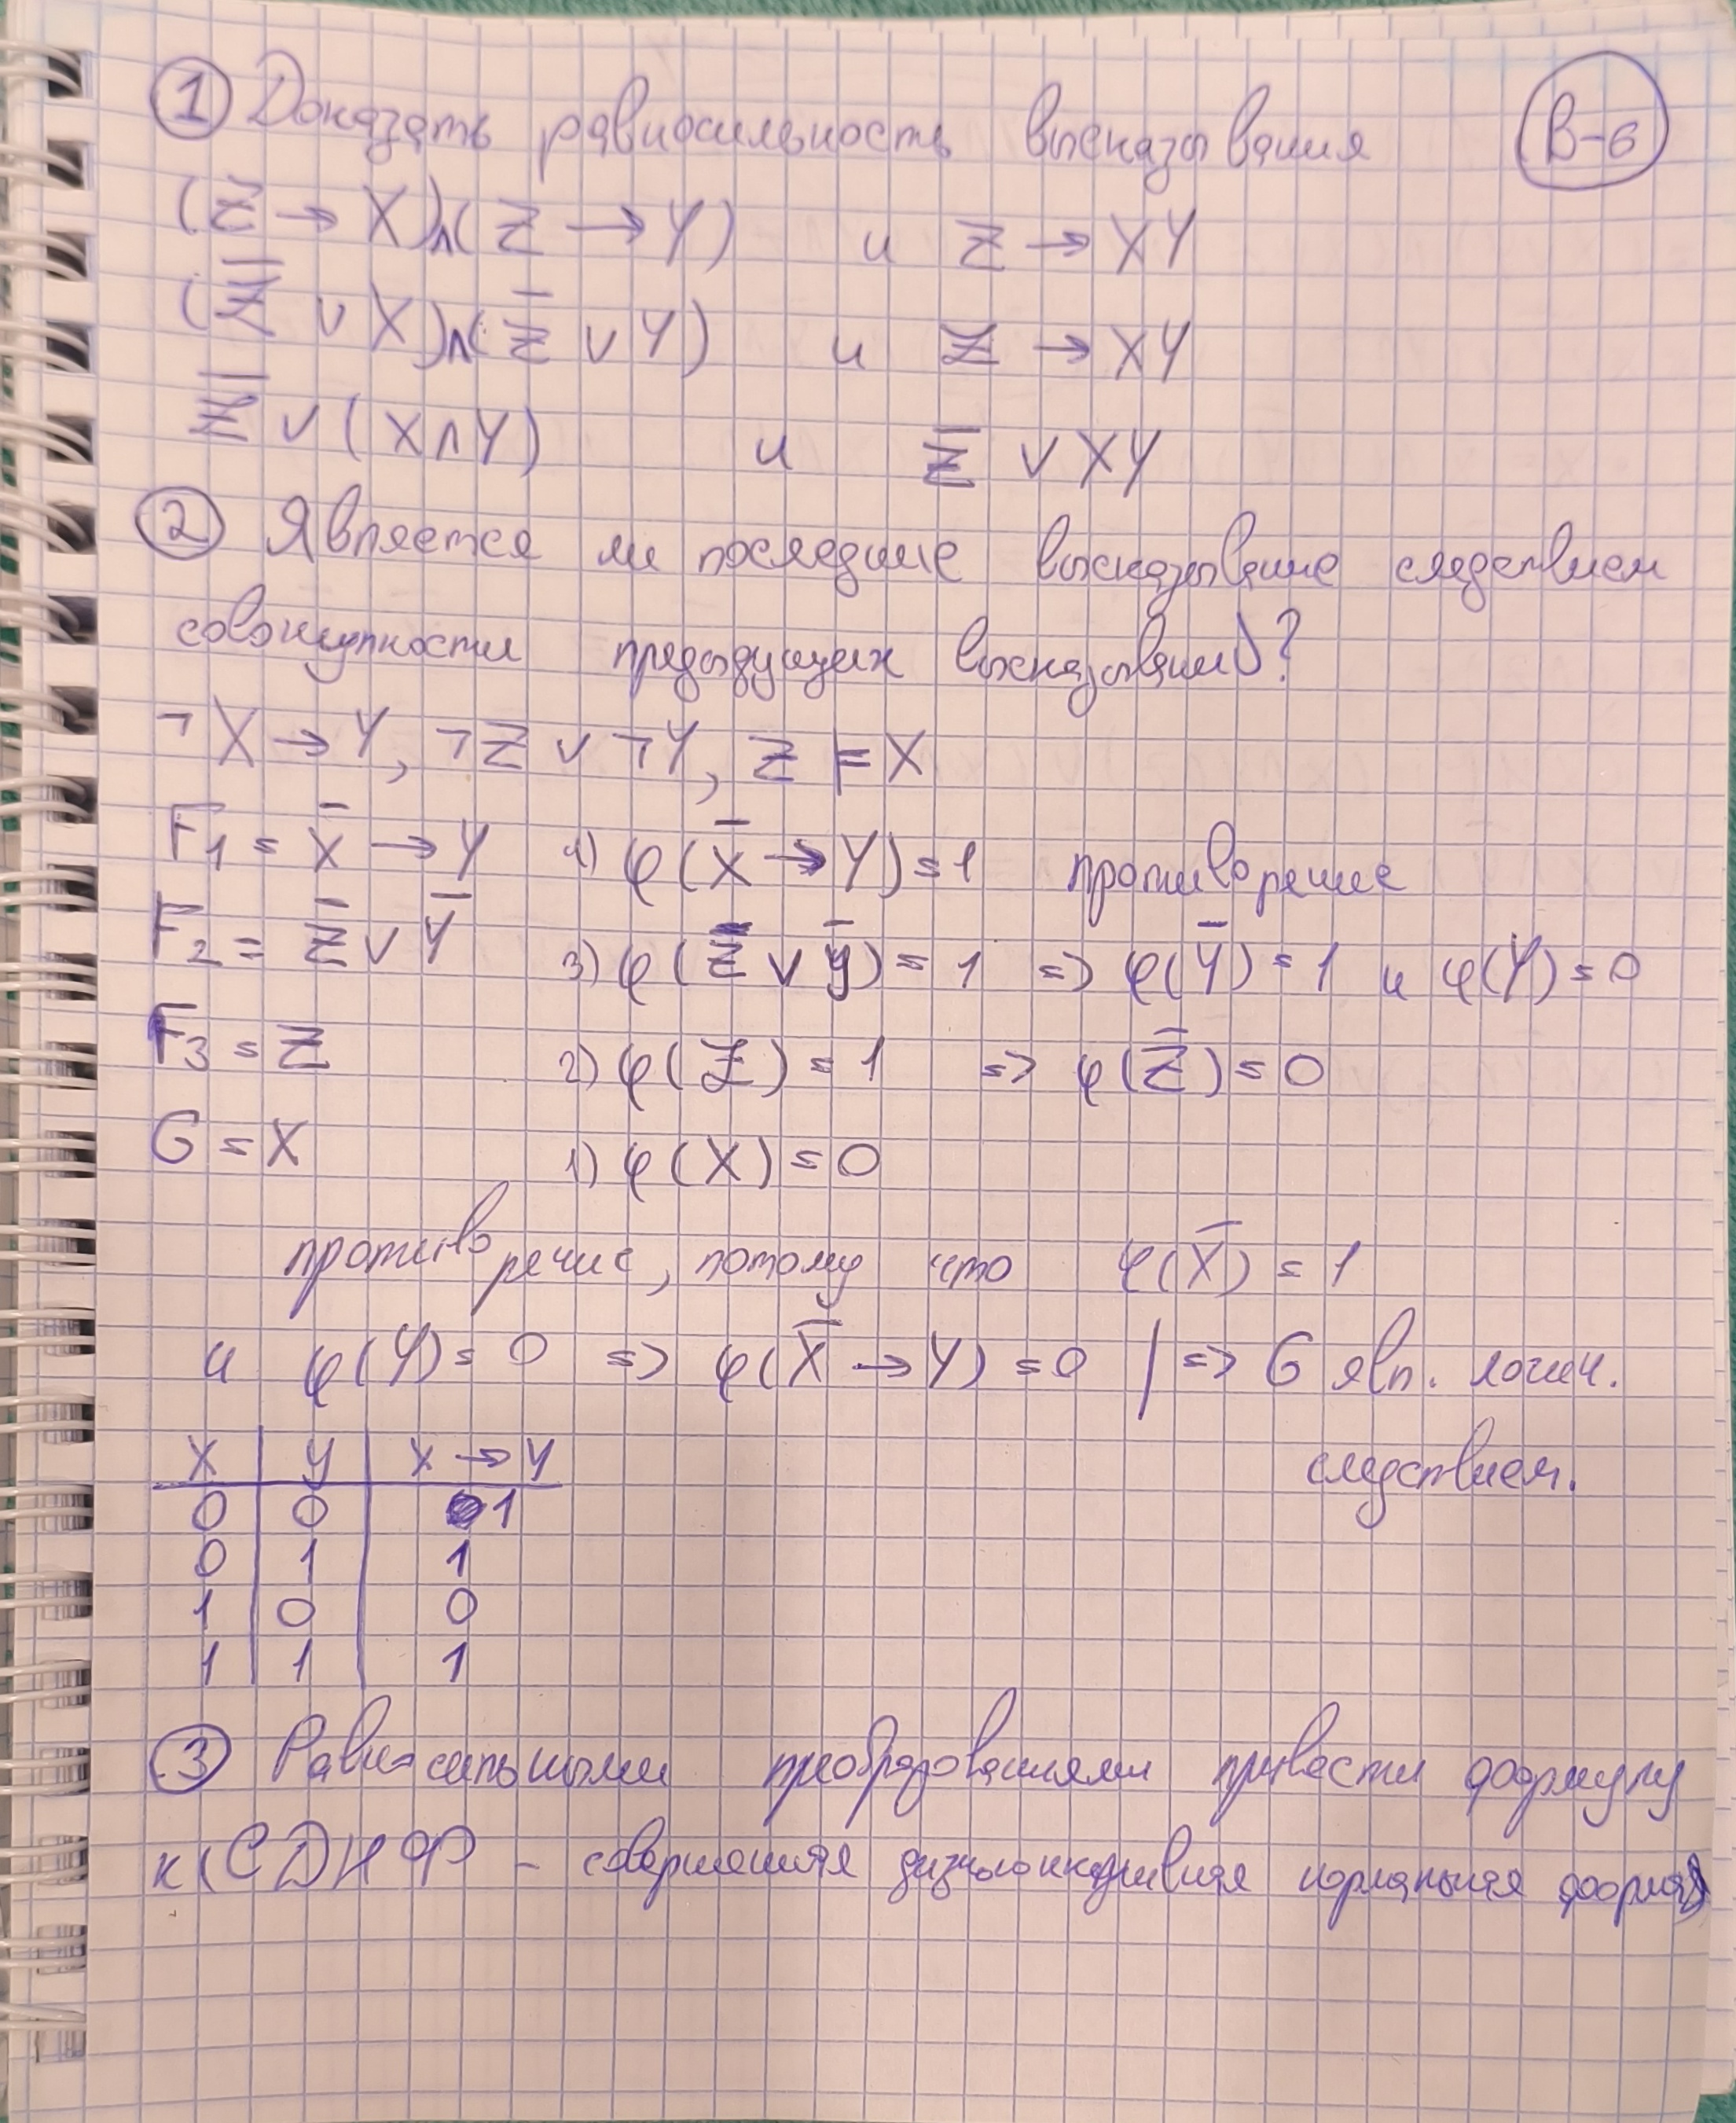 ① Доказать равносильность высказывания В-6
(Z → X)∧(Z → Y) и Z → XY
(Z̅ ∨ X)∧(Z̅ ∨ Y) и Z → XY
Z̅ ∨ (X∧Y) и Z̅ ∨ XY
② Является ли последние высказывание следствием
совокупности предыдущих высказываний?
¬X → Y, ¬Z ∨ ¬Y, Z ⊨ X
F₁ = X̅ → Y 4) φ(X̅ → Y) = 1 противоречие
F₂ = Z̅ ∨ Y̅ 3) φ(Z̅ ∨ y̅) = 1 => φ(Y̅) = 1 и φ(Y) = 0
F₃ = Z 2) φ(Z) = 1 => φ(Z̅) = 0
G = X 1) φ(X) = 0
противоречие, потому что φ(X̅) = 1
и φ(Y) = 0 => φ(X̅ → Y) = 0 | => G явл. логич.
следствием.
X Y X → Y
0 0 1
0 1 1
1 0 0
1 1 1
③ Равносильными преобразованиями привести формулу
к (СДНФ - совершенная дизъюнктивная нормальная форма)